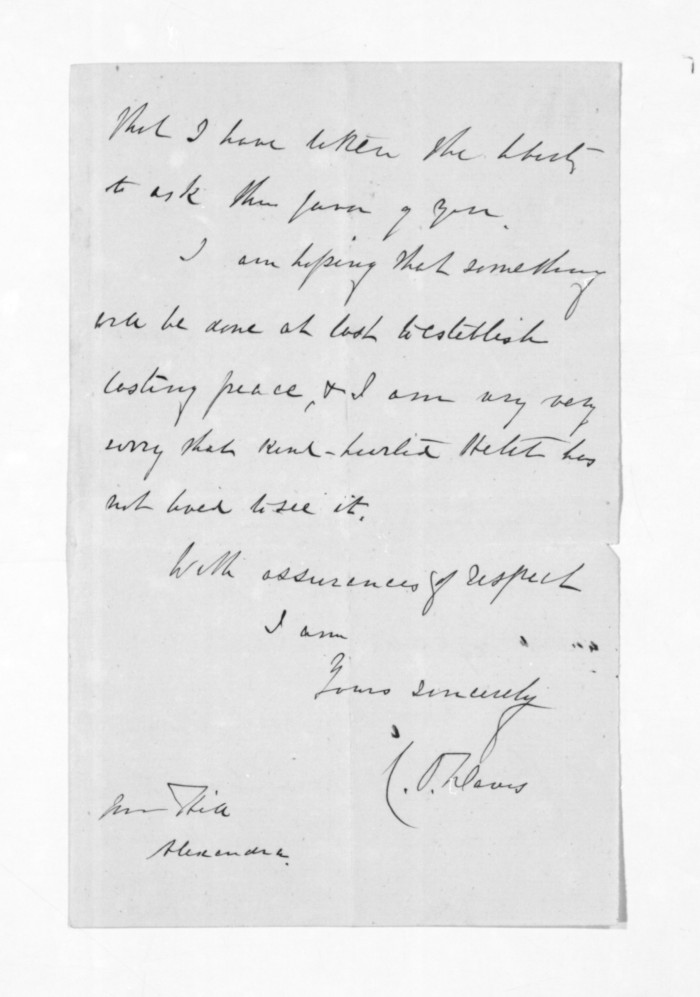 that I have taken the liberty
to ask this favor of you.
I am hoping that something
will be done at last to establish
lasting peace, & I am very very
sorry that kind-hearted Hetet has
not lived to see it.
With assurances of respect
I am
Yours sincerely
C. O. Davis
Hill
Alexandra.